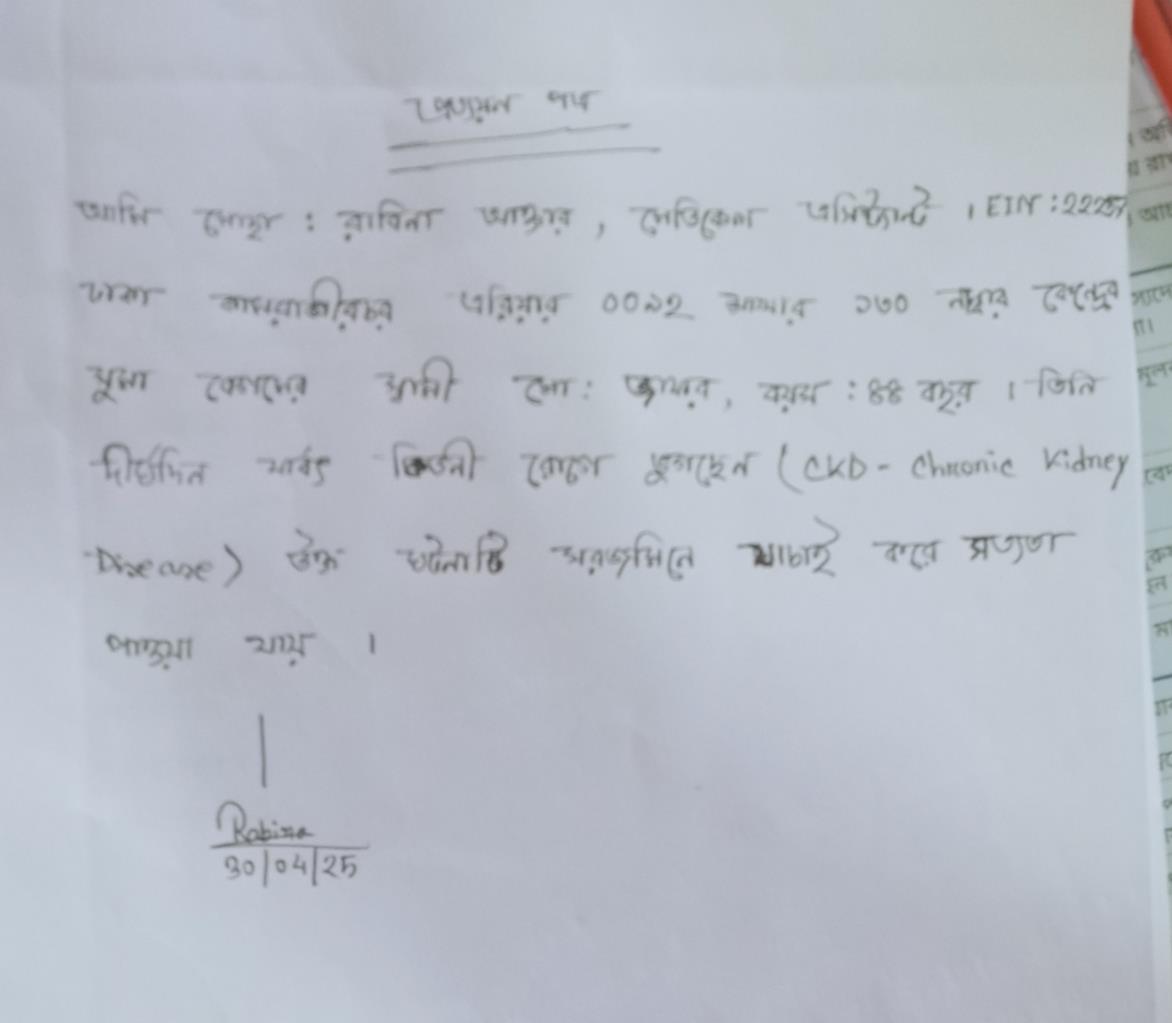 প্রত্যয়ন পত্র
আমি মোছা: রাবিনা আক্তার, মেডিকেল এসিস্ট্যান্ট । EIN: 22257
ঢাকা কামরাঙ্গীরচর এরিয়ার ০০৯২ শাখার ১৩০ নম্বর কেন্দ্রের
স্বামী মো: বয়স : ৪৪ বছর । তিনি
দীর্ঘদিন যাবৎ কিডনী রোগে ভুগছেন (CKD - Chronic Kidney
Disease) উক্ত ঘটনাটি সরজমিনে যাচাই করে সত্যতা
পাওয়া যায় ।
Rabina
30/04/25